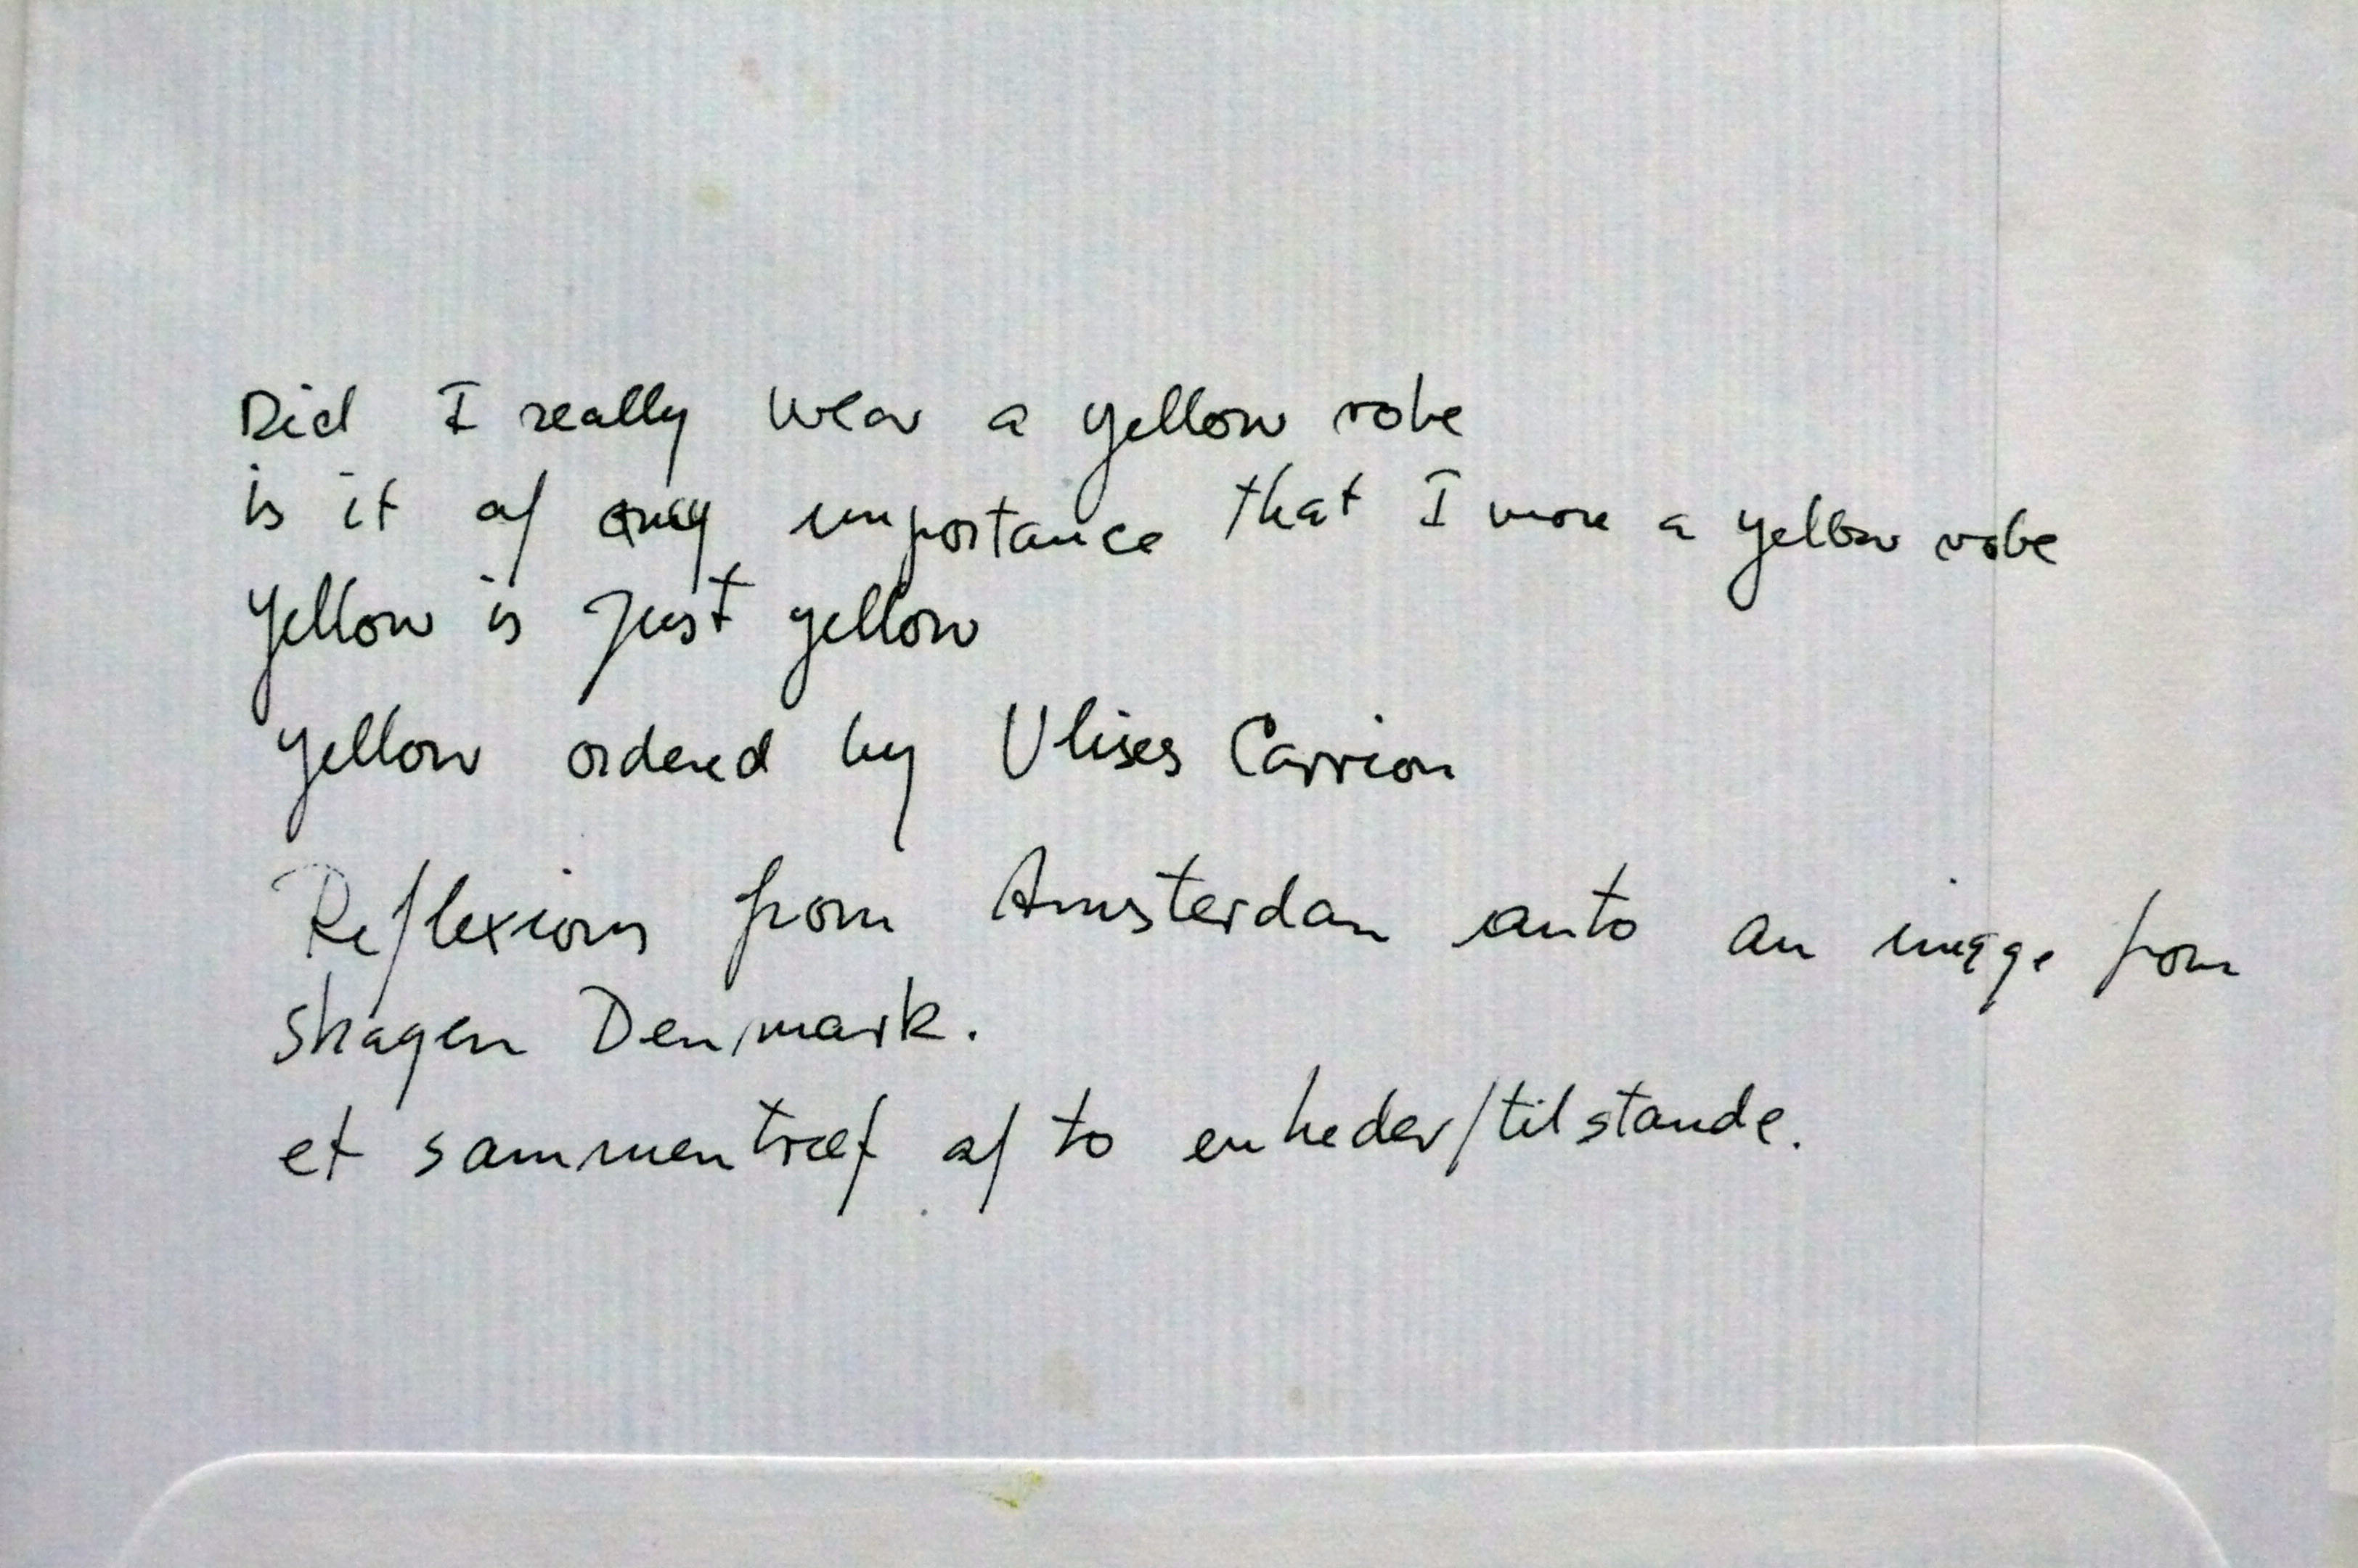 Did I really wear a yellow robe
is it of any importance that I wore a yellow robe
Yellow is just yellow
yellow ordered by Ulises Carrion
Reflexions from Amsterdam onto an image from
Skagen Denmark.
et sammentræf af to enheder/tilstande.